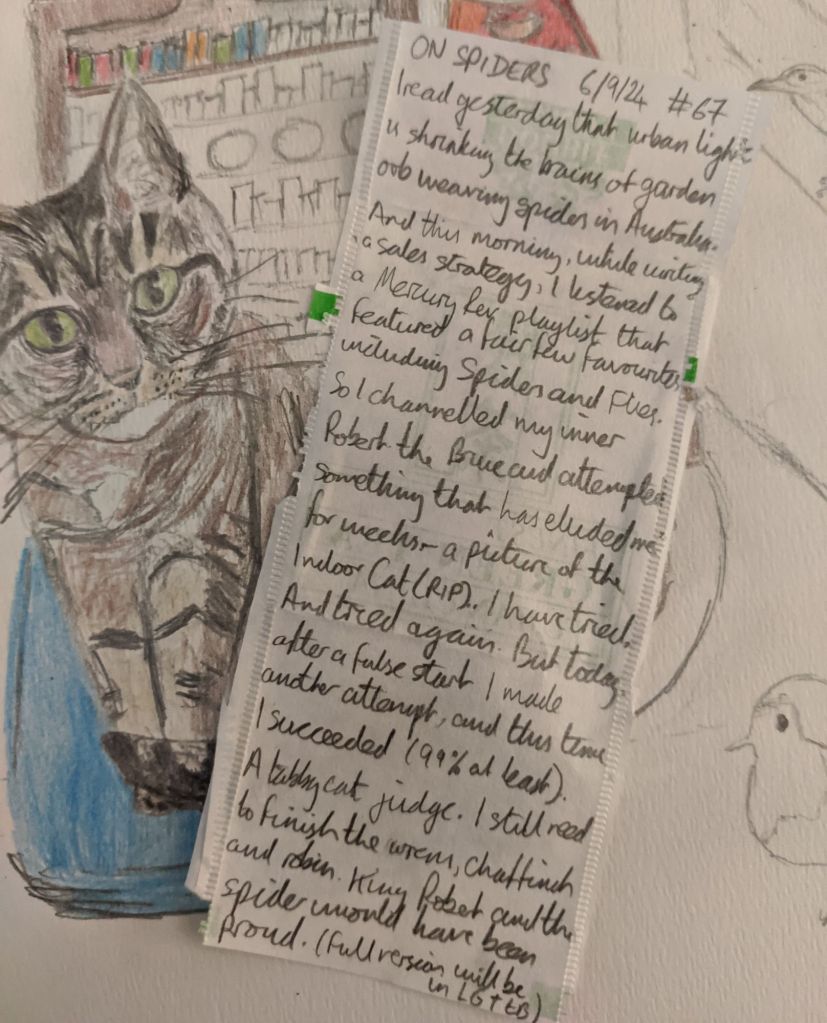 ON SPIDERS 6/9/24 #67
I read yesterday that urban light
is shrinking the brains of garden
orb weaving spiders in Australia.
And this morning, while writing
a sales strategy, I listened to
a Mercury Rev playlist that
featured a fair few favourites
including Spiders and Flies.
So I channelled my inner
Robert the Bruce and attempted
something that has eluded me
for weeks - a picture of the
Indoor Cat (RIP). I have tried.
And tried again. But today,
after a false start I made
another attempt, and this time
I succeeded (99% at least).
A tabby cat judge. I still need
to finish the wren, chaffinch
and robin. King Robert and the
spider would have been
proud. (Full version will be
in LG + EB)